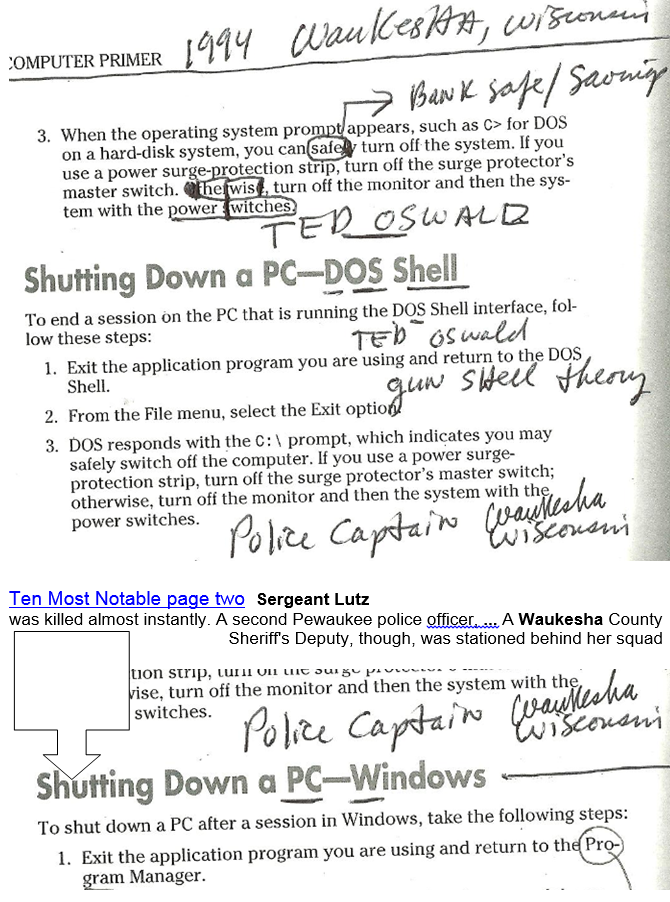 COMPUTER PRIMER 1994 WaukesHA, wisconsin
Bank safe/Savings
3. When the operating system prompt appears, such as C> for DOS
on a hard-disk system, you can safely turn off the system. If you
use a power surge-protection strip, turn off the surge protector's
master switch. Otherwise, turn off the monitor and then the sys-
tem with the power switches.
TED OSWALD
Shutting Down a PC—DOS Shell
To end a session on the PC that is running the DOS Shell interface, fol-
low these steps:
TED oswald
1. Exit the application program you are using and return to the DOS
Shell.
gun SHell theory
2. From the File menu, select the Exit option
3. DOS responds with the C:\ prompt, which indicates you may
safely switch off the computer. If you use a power surge-
protection strip, turn off the surge protector's master switch;
otherwise, turn off the monitor and then the system with the
power switches.
Police Captain Waukesha
Wisconsin
Ten Most Notable page two Sergeant Lutz
was killed almost instantly. A second Pewaukee police officer, ... A Waukesha County
Sheriff's Deputy, though, was stationed behind her squad
tion strip, turn off the surge
wise, turn off the monitor and then the system with the
switches.
Police Captain Waukesha
Wisconsin
Shutting Down a PC—Windows
To shut down a PC after a session in Windows, take the following steps:
1. Exit the application program you are using and return to the Pro-
gram Manager.